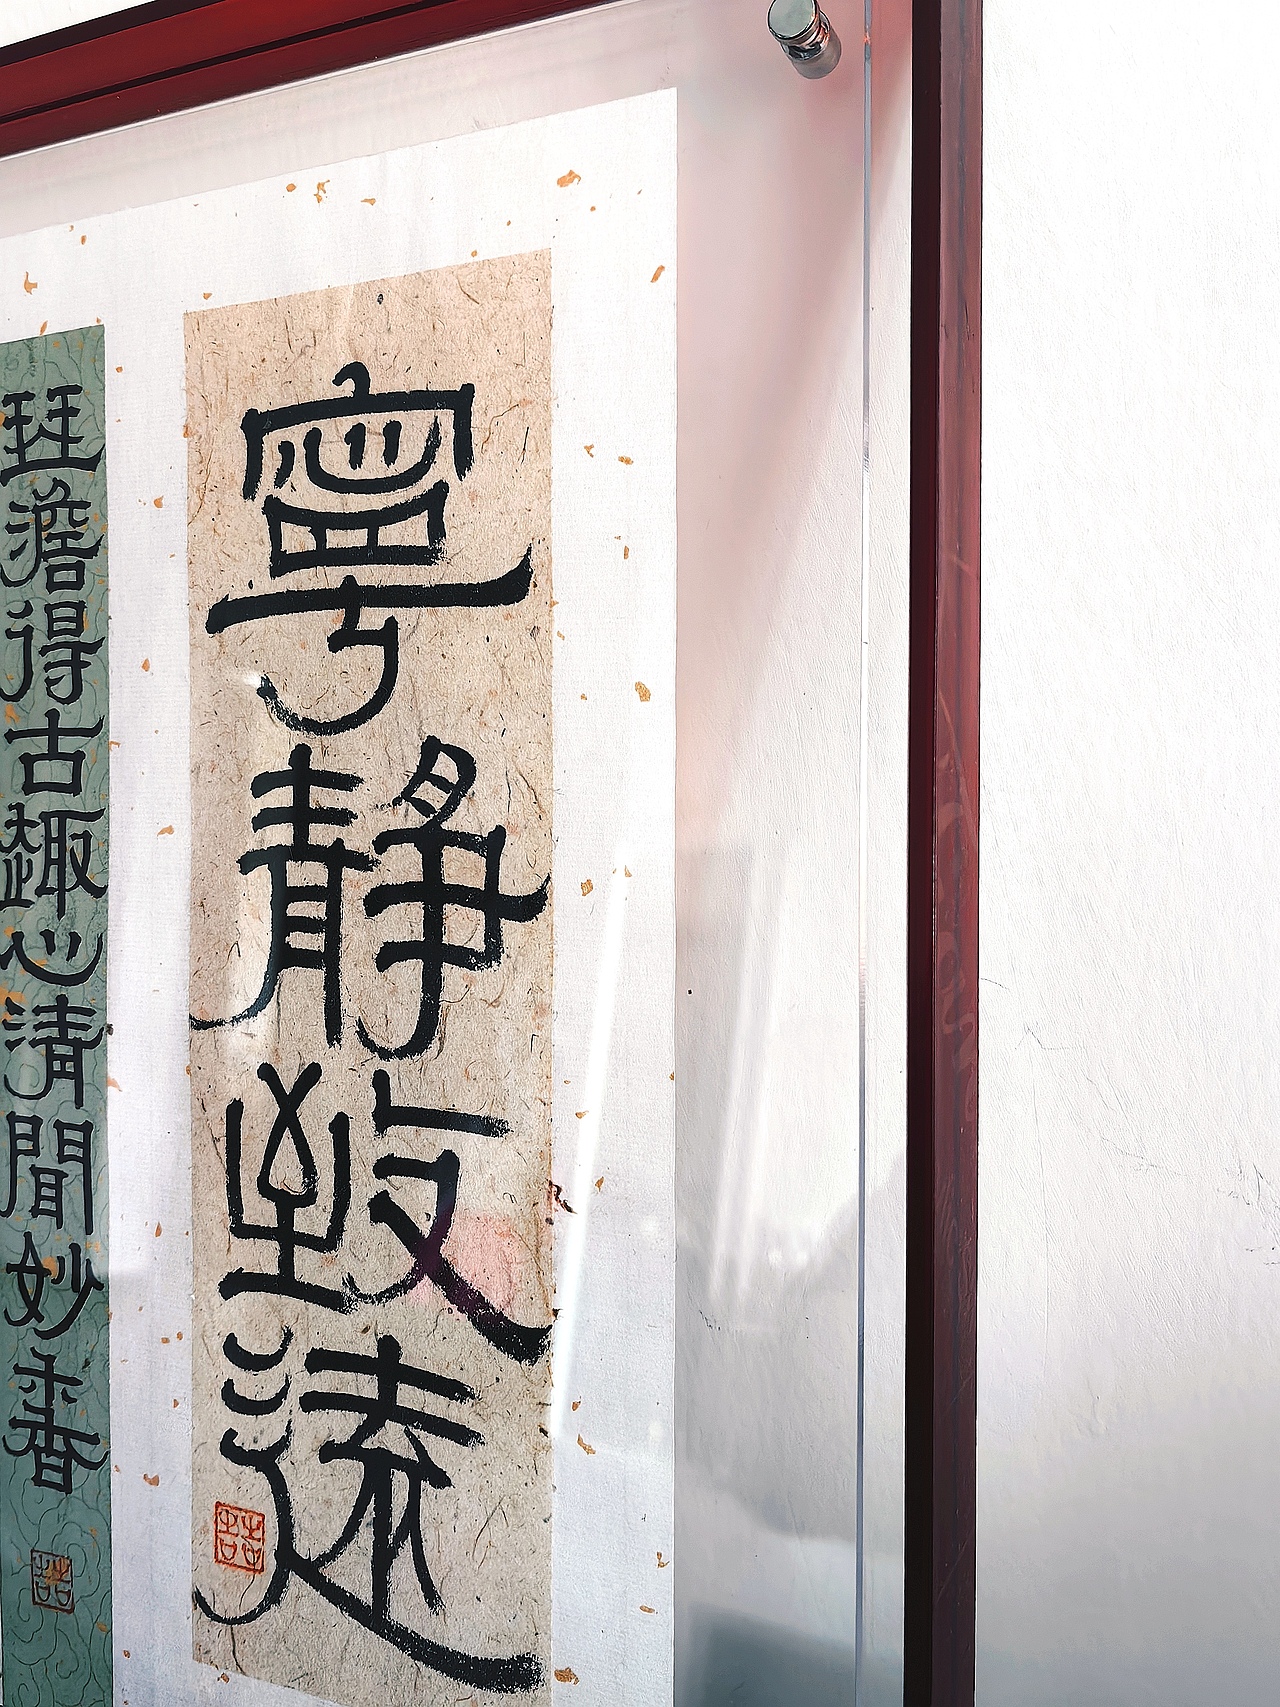 寧靜致遠
琴澹得古趣心清聞妙香